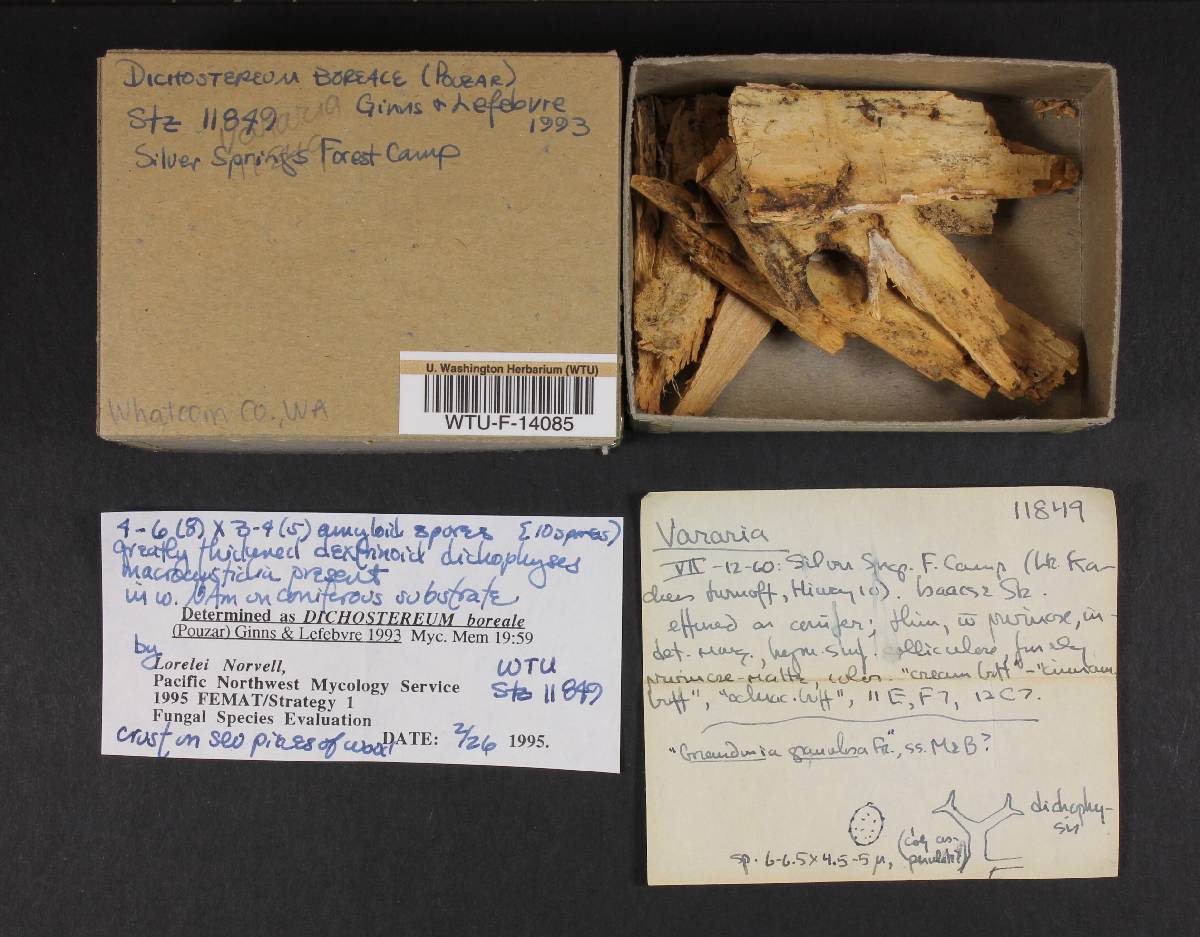 DICHOSTEREUM BOREALE (POUZAR)
Ginns & Lefebvre
Stz 11849
1993
Silver Springs Forest Camp
Whatcom Co., WA
U. Washington Herbarium (WTU)
WTU-F-14085
4-6(8) X 3-4(5) amyloid spores {10 spores}
greatly thickened dextrinoid dichophyses
macrocystidia present
in w. NAm on coniferous substrate
Determined as DICHOSTEREUM boreale
(Pouzar) Ginns & Lefebvre 1993 Myc. Mem 19:59
by
Lorelei Norvell,
Pacific Northwest Mycology Service
1995 FEMAT/Strategy 1
Fungal Species Evaluation
WTU
Stz 11849
crust on sev pieces of wood
DATE: 2/26 1995.
11849
Vararia
VII-12-60: Silver Spgs. F. Camp
turnoff, Hiway 10). Isaacs & Stz.
effused on conifer; thin, pruinose, in-
det. marg., hym. surf. colliculose, finely
pruinose-matte, color "cream buff"-"cinnam.
buff", "ochrac. buff", 11E, F7, 12C7.
"Grandinia granulosa Fr.", ss. M&B?
dichophy-
sis
sp. 6-6.5 X 4.5-5 µ,